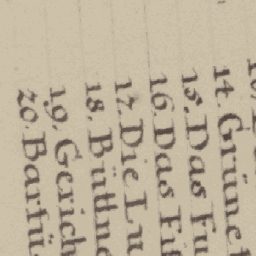 14. Grünet
15. Das Fu
16. Das Fi
17. Die Lu
18. Büttne
19. Gerich
20. Barfü